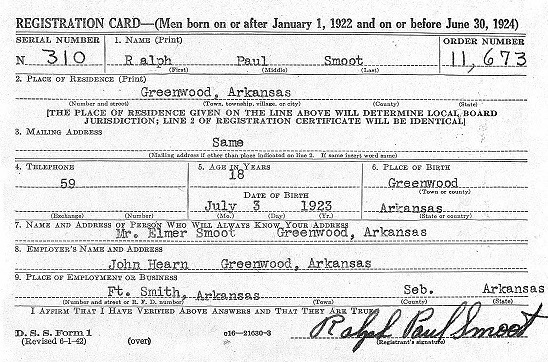 REGISTRATION CARD—(Men born on or after January 1, 1922 and on or before June 30, 1924)
SERIAL NUMBER 1. NAME (Print) ORDER NUMBER
N 310 Ralph Paul Smoot 11,673
(First) (Middle) (Last)
2. PLACE OF RESIDENCE (Print)
Greenwood, Arkansas
(Number and street) (Town, township, village, or city) (County) (State)
[THE PLACE OF RESIDENCE GIVEN ON THE LINE ABOVE WILL DETERMINE LOCAL BOARD
JURISDICTION; LINE 2 OF REGISTRATION CERTIFICATE WILL BE IDENTICAL]
3. MAILING ADDRESS
Same
(Mailing address if other than place indicated on line 2. If same insert word same)
4. TELEPHONE 5. AGE IN YEARS 6. PLACE OF BIRTH
59 18 Greenwood
DATE OF BIRTH (Town or county)
July 3 1923 Arkansas
(Exchange) (Number) (Mo.) (Day) (Yr.) (State or country)
7. NAME AND ADDRESS OF PERSON WHO WILL ALWAYS KNOW YOUR ADDRESS
Mr. Elmer Smoot Greenwood, Arkansas
8. EMPLOYER'S NAME AND ADDRESS
John Hearn Greenwood, Arkansas
9. PLACE OF EMPLOYMENT OR BUSINESS
Ft. Smith, Arkansas Seb. Arkansas
(Number and street or R. F. D. number) (Town) (County) (State)
I AFFIRM THAT I HAVE VERIFIED ABOVE ANSWERS AND THAT THEY ARE TRUE.
D. S. S. Form 1 c16—21630-3 Ralph Paul Smoot
(Revised 6-1-42) (over) (Registrant's signature)